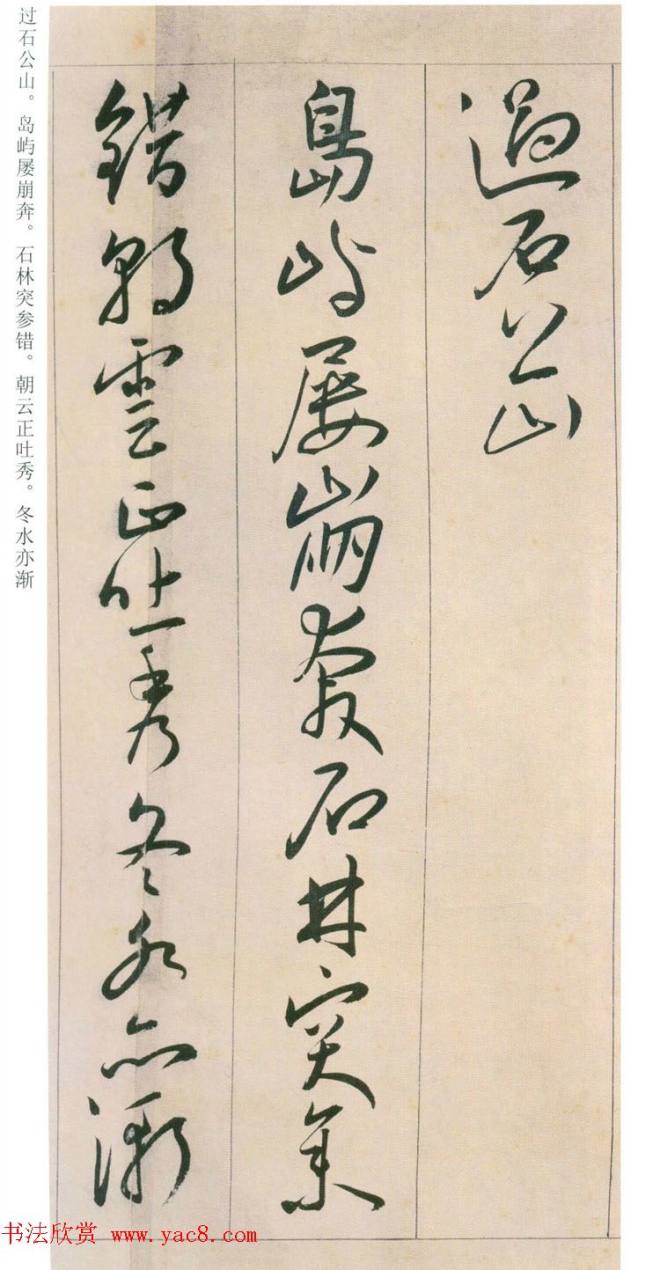 過石公山
島嶼屢崩奔石林突參
錯朝雲正吐秀冬水亦漸
过石公山。岛屿屡崩奔。石林突参错。朝云正吐秀。冬水亦渐
书法欣赏 www.yac8.com